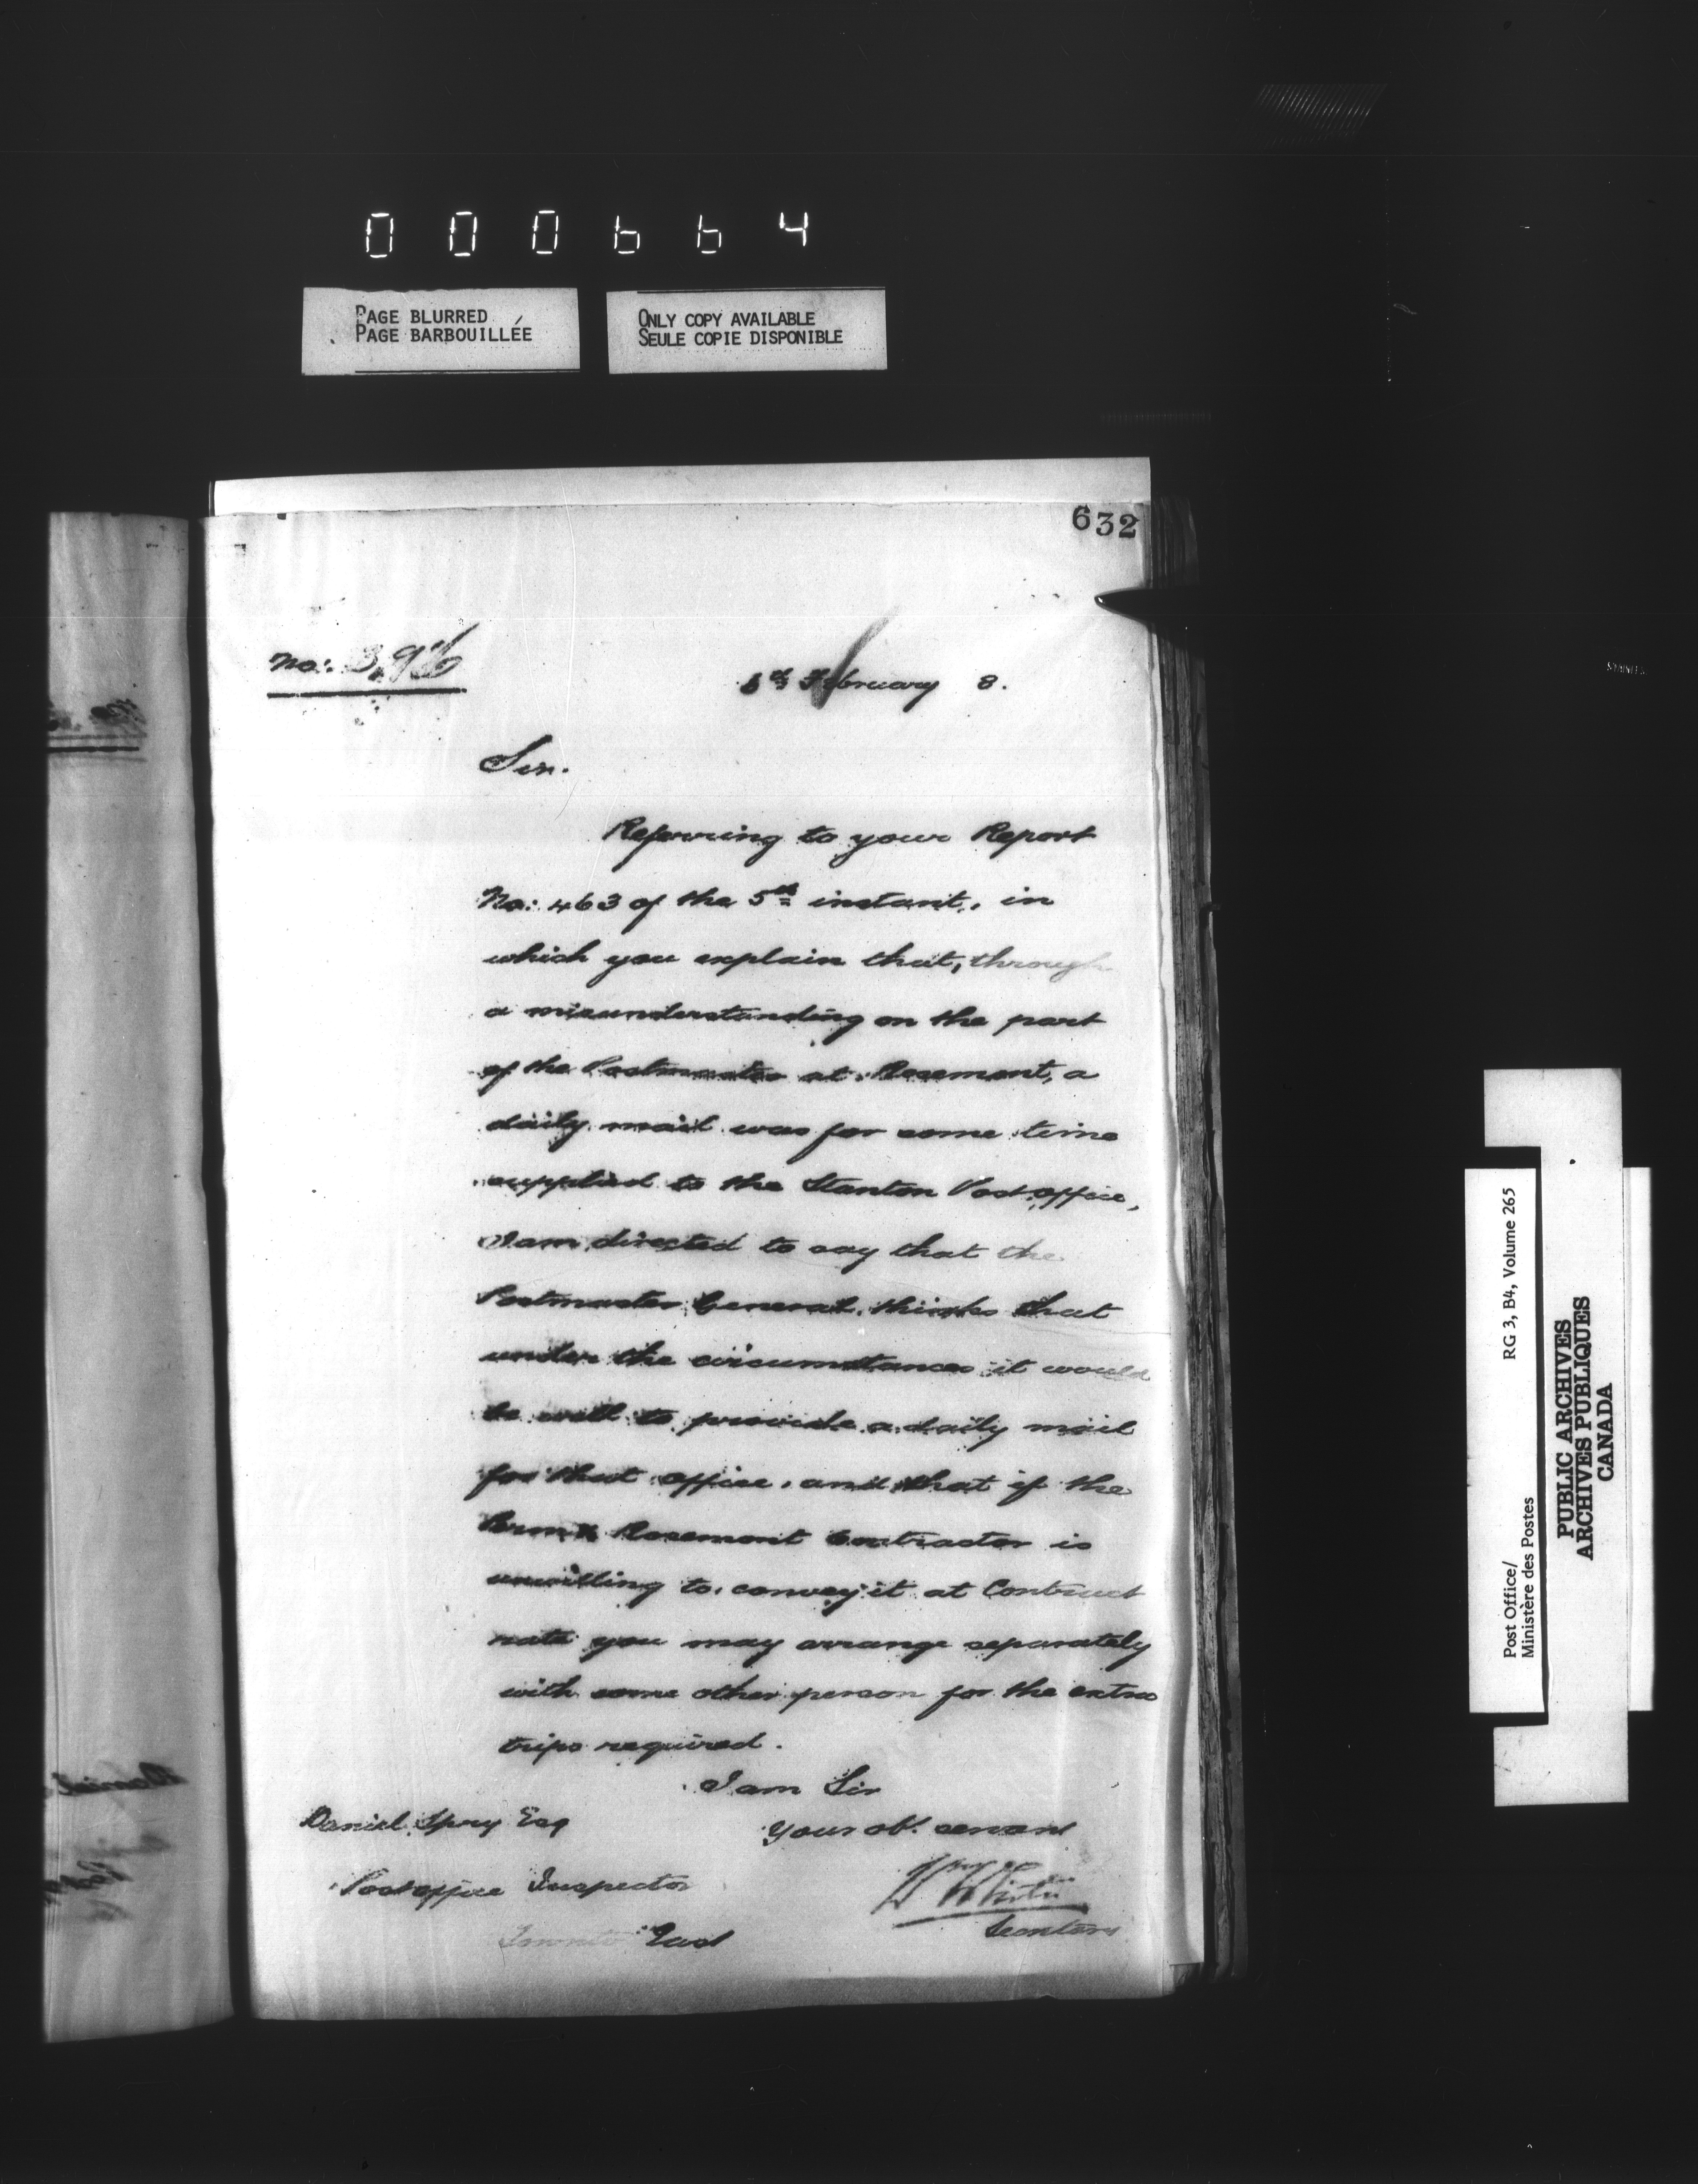 000664
PAGE BLURRED
PAGE BARBOUILLÉE
ONLY COPY AVAILABLE
SEULE COPIE DISPONIBLE
632
No:
February 8.
Sir.
Referring to your Report
No: 463 of the 5th instant, in
which you explain that, through
a misunderstanding on the part
of the Postmaster at Rosemont, a
daily mail was for some time
supplied to the Stanton Post office,
I am directed to say that the
Postmaster General thinks that
under the circumstances it would
be well to provide a daily mail
for that office, and that if the
Rosemont Contractor is
unwilling to convey it at Contract
rate you may arrange separately
with some other person for the extra
trips required.
I am Sir
Your obt. servant
Daniel Spry Esq
Post office Inspector
Secretary
Toronto
Post Office/
Ministère des Postes
RG 3, B4, Volume 265
PUBLIC ARCHIVES
ARCHIVES PUBLIQUES
CANADA